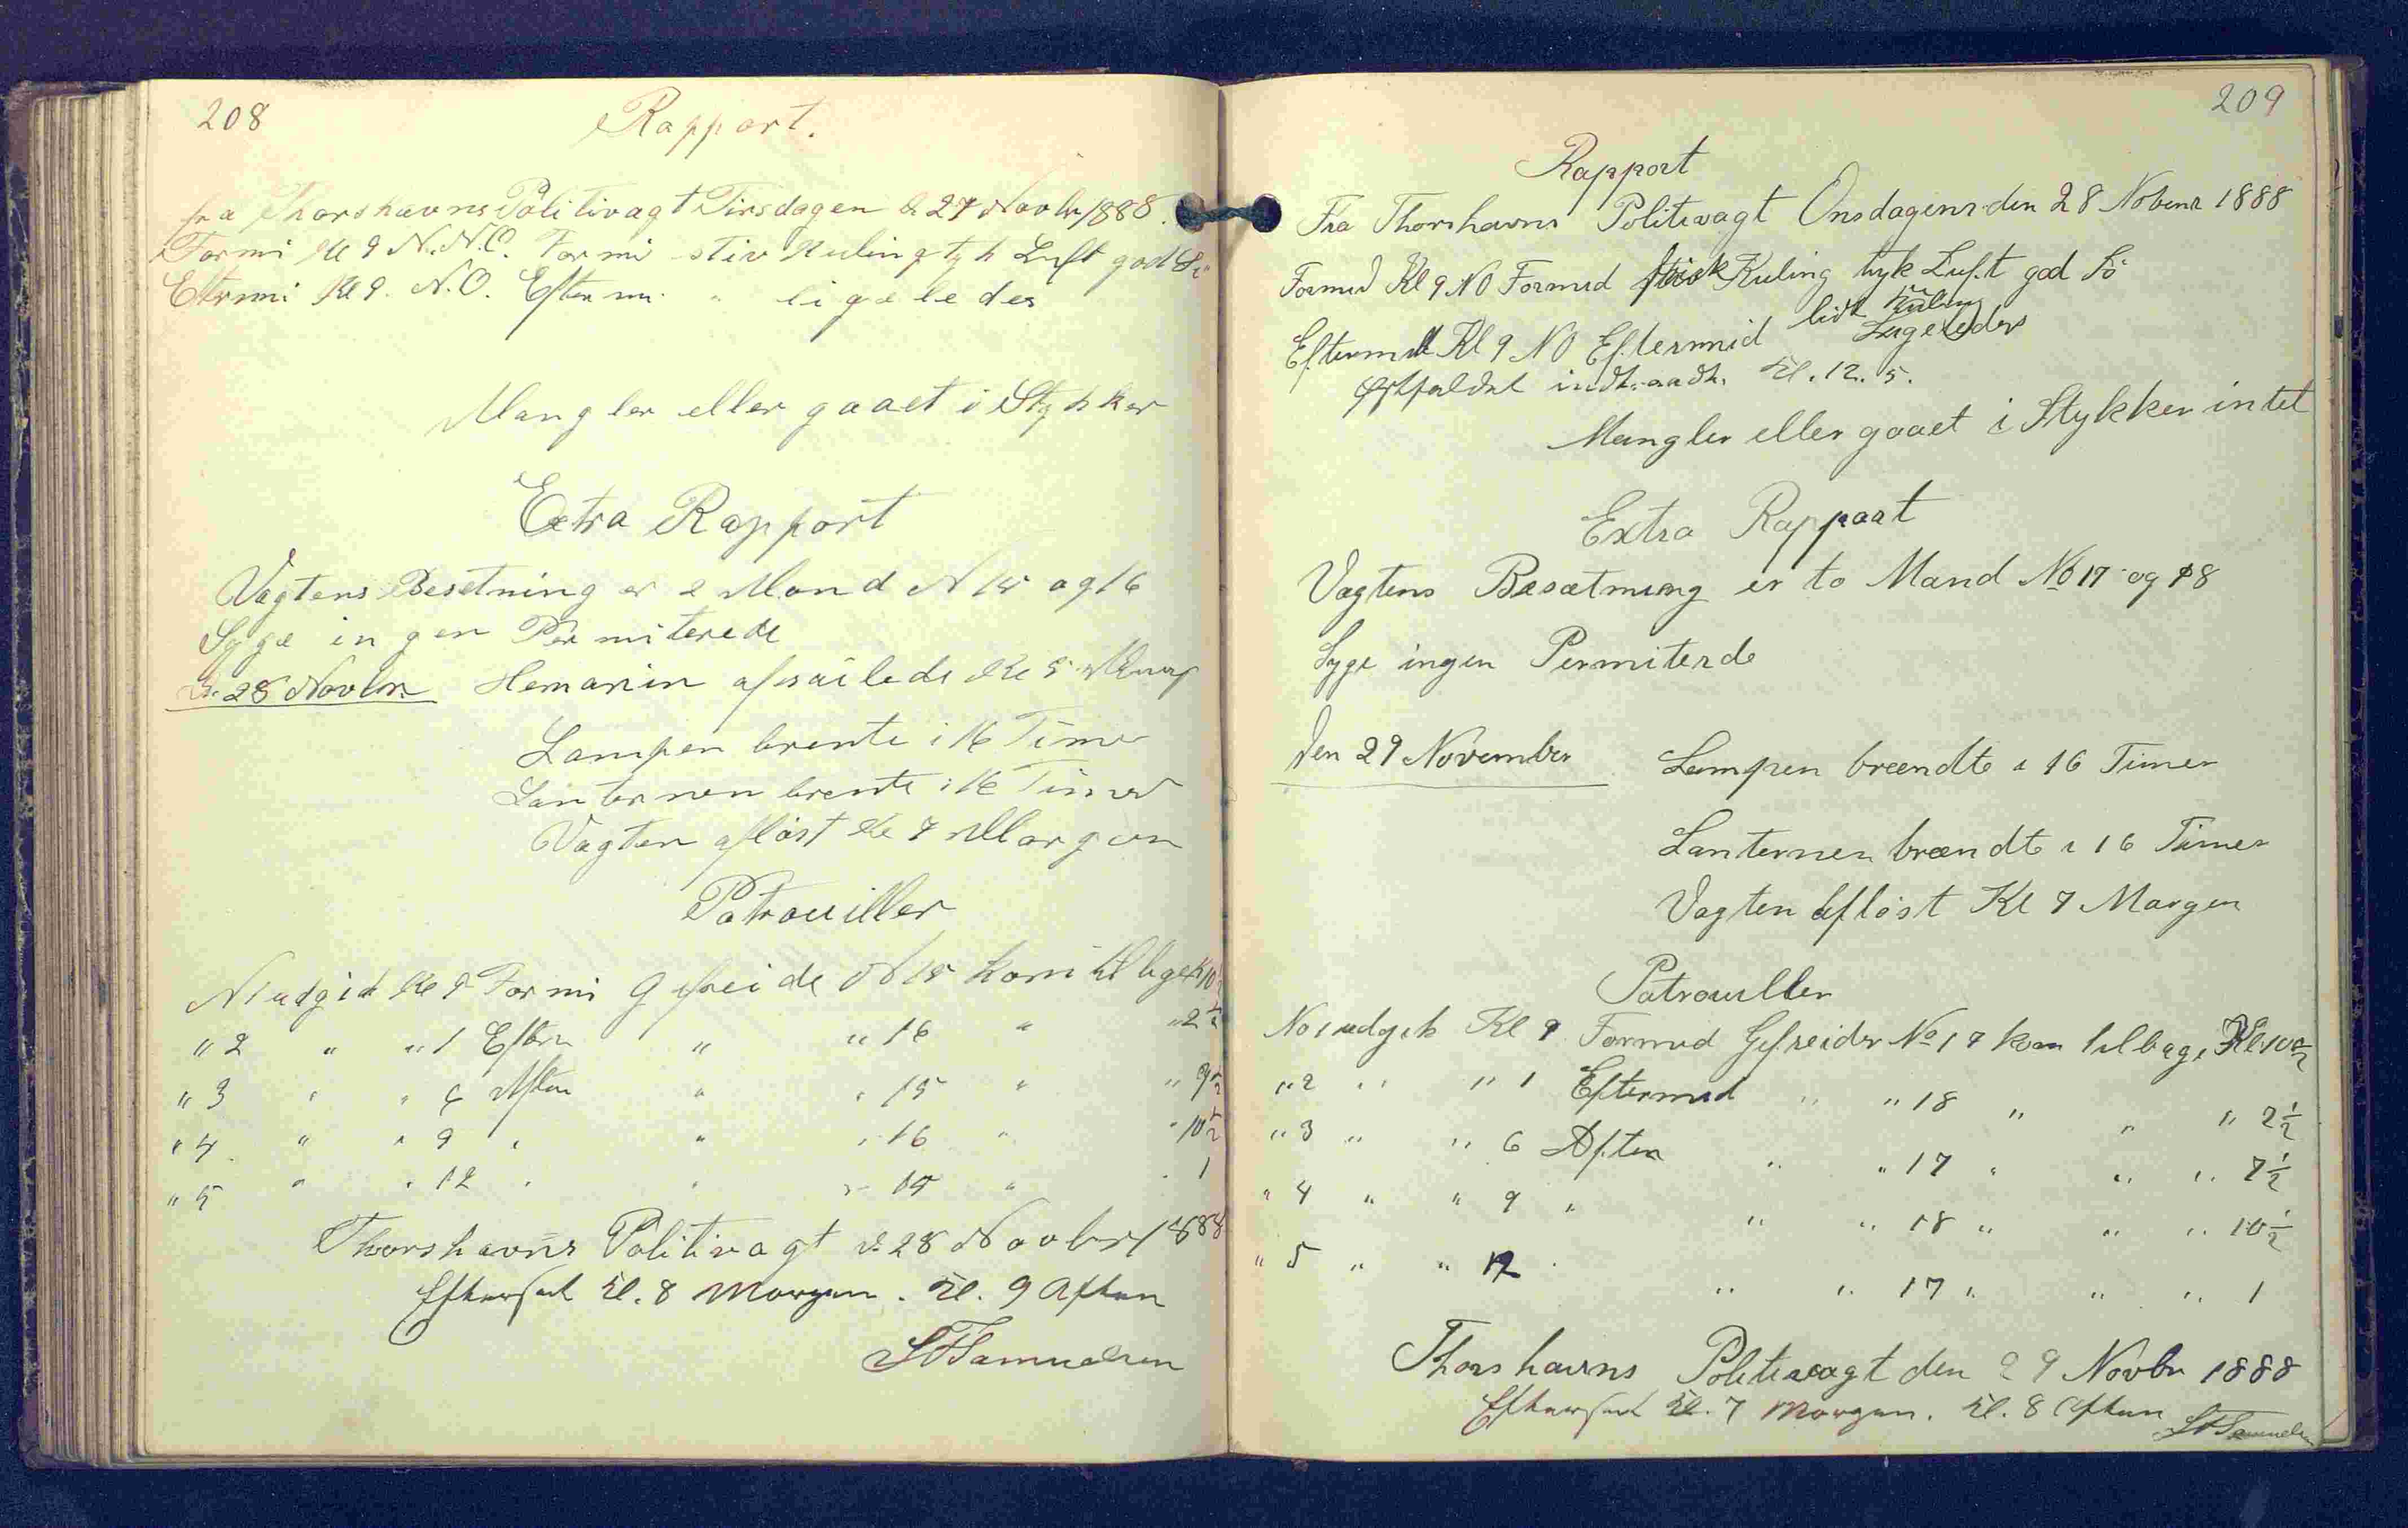 208
Rapport.
fra Thorshavns Politivagt Tirsdagen d. 27 Novbr 1888.
Formi Kl 9 N.N.O. Formi stiv Kuling tyk Luft god Sö
Eftermi Kl 9. N.O. Eftermi. " ligeledes
Mangler eller gaaet i Stykker
Extra Rapport
Vagtens Besetning er 2 Mand N 15 og 16
Syge ingen Permiterede
D. 28 Novbr. afsailede Kl 5
Lampen brente i 16 Timer
Lanternen brente i 16 Timer
Vagten afløst Kl 7 Morgen
Patrouiller
N 1 udgik Kl 9 Formi Gefreide N 15 kom tilbage Kl 10½
" 2 " " 1 Efterm " " 16 " " 2½
" 3 " " 6 Aften " " 15 "
" 4 " " 9 " " " 16 " " 10½
" 5 " " 12 " " " 15 " " 1
Thorshavns Politivagt d. 28 Novbr 1888
Efterseet Kl. 8 Morgen. Kl. 9 Aften
Samuelsen
209
Rapport
Fra Thorshavns Politivagt Onsdagens den 28 Nobenr 1888
Formid Kl 9 NO Formid frisk Kuling tyk Luft god Sö
lidt Kuling
Eftermid Kl 9 NO Eftermid Ligeledes
Kl. 12. 5.
Mangler eller gaaet i Stykker intet
Extra Rapport
Vagtens Besætning er to Mand No 17 og 18
Syge ingen Permiterde
Den 29 November Lampen brændte i 16 Timer
Lanternen brændte i 16 Timer
Vagten Afløst Kl 7 Morgen
Patrouiller
No 1 udgik Kl 9 Formid Gefreider No 17 kom tilbage Kl 10½
" 2 " " 1 Eftermid " " 18 " " " 2½
" 3 " " 6 Aften " " 17 " " " 7½
" 4 " " 9 " " " 18 " " " 10½
" 5 " " 12 " " " 17 " " " 1
Thorshavns Politivagt den 29 Novbr 1888
Efterseet Kl. 7 Morgen. Kl. 8 Aften
Samuelsen